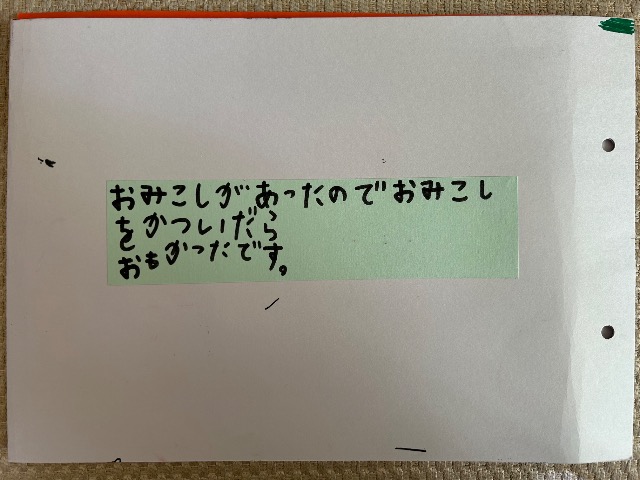 おみこしがあったのでおみこし
をかついだら
おもかったです。